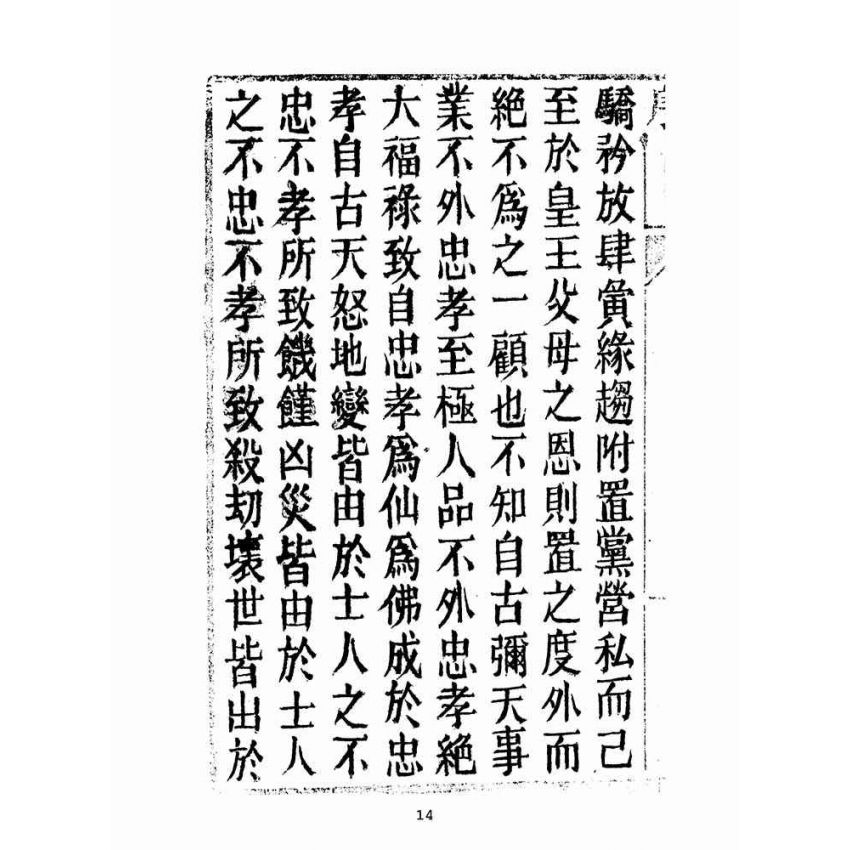 驕矜放肆夤緣趨附置黨營私而己
至於皇王父母之恩則置之度外而
絶不爲之一顧也不知自古彌天事
業不外忠孝至極人品不外忠孝絶
大福祿致自忠孝爲仙爲佛成於忠
孝自古天怒地變皆由於士人之不
忠不孝所致饑饉凶災皆由於士人
之不忠不孝所致殺劫壞世皆出於
14